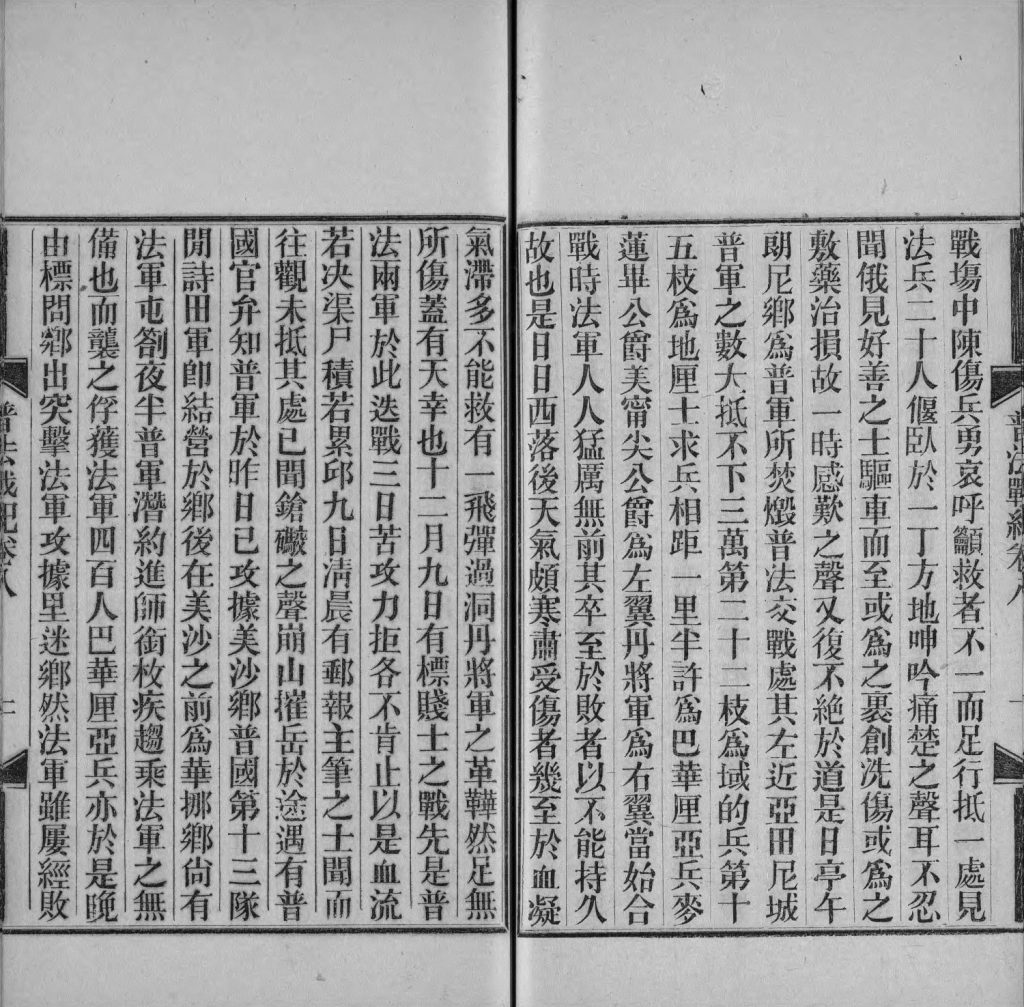 戰塲中陳傷兵勇哀呼籲救者不一而足行抵一處見
法兵二十人偃臥於一丁方地呻吟痛楚之聲耳不忍
聞俄見好善之士驅車而至或爲之裹創洗傷或爲之
敷藥治損故一時感歎之聲又復不絶於道是日亭午
朙尼鄉爲普軍所焚燬普法交戰處其左近亞田尼城
普軍之數大抵不下三萬第二十二枝爲域的兵第十
五枝爲地厘士求兵相距一里半許爲巴華厘亞兵麥
蓮畢公爵美甯尖公爵爲左翼丹將軍爲右翼當始合
戰時法軍人人猛厲無前其卒至於敗者以不能持久
故也是日日西落後天氣頗寒肅受傷者幾至於血凝
氣滯多不能救有一飛彈過洞丹將軍之革鞾然足無
所傷蓋有天幸也十二月九日有標賤士之戰先是普
法兩軍於此迭戰三日苦攻力拒各不肯止以是血流
若决渠尸積若累邱九日淸晨有郵報主筆之士聞而
往觀未抵其處已聞鎗礮之聲崩山摧岳於途遇有普
國官弁知普軍於昨日已攻據美沙鄉普國第十三隊
閒詩田軍卽結營於鄉後在美沙之前爲華挪鄉尙有
法軍屯劄夜半普軍潛約進師銜枚疾趨乘法軍之無
備也而襲之俘獲法軍四百人巴華厘亞兵亦於是晚
由標問鄉出突擊法軍攻據里迷鄉然法軍雖屢經敗
普法戰紀卷八